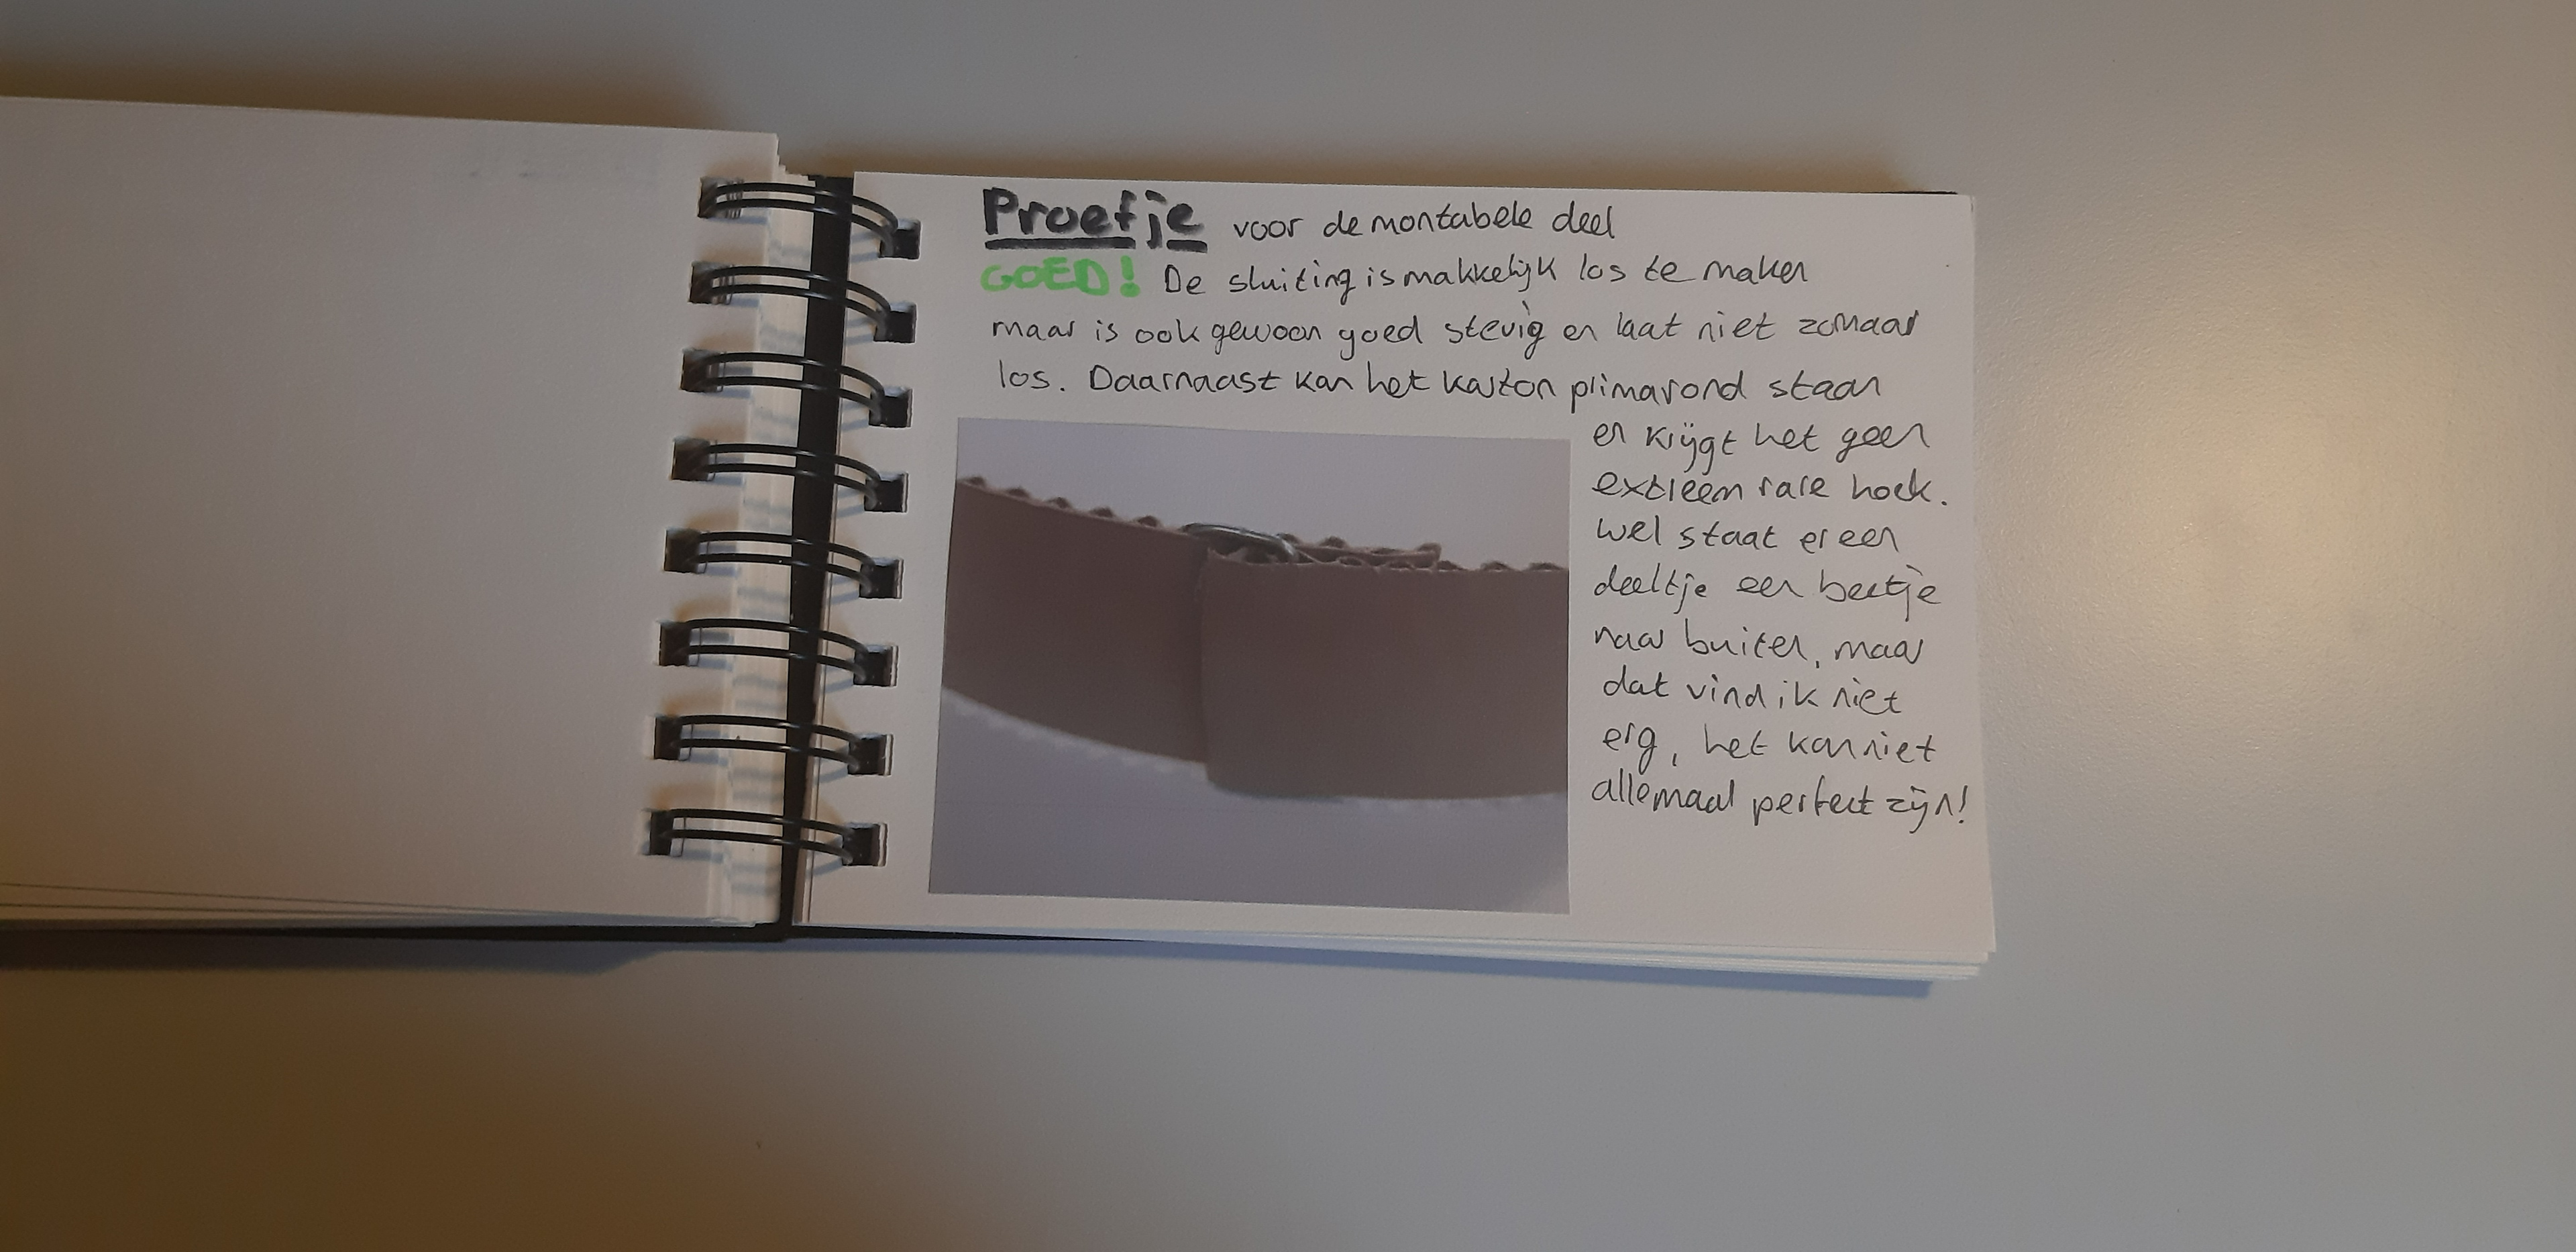 Proefje voor de montabele deel
GOED! De sluiting is makkelijk los te maken
maar is ook gewoon goed stevig en laat niet zomaar
los. Daarnaast kan het karton prima rond staan
en krijgt het geen
extreem rare hoek.
Wel staat er een
deeltje een beetje
naar buiten, maar
dat vind ik niet
erg, het kan niet
allemaal perfect zijn!